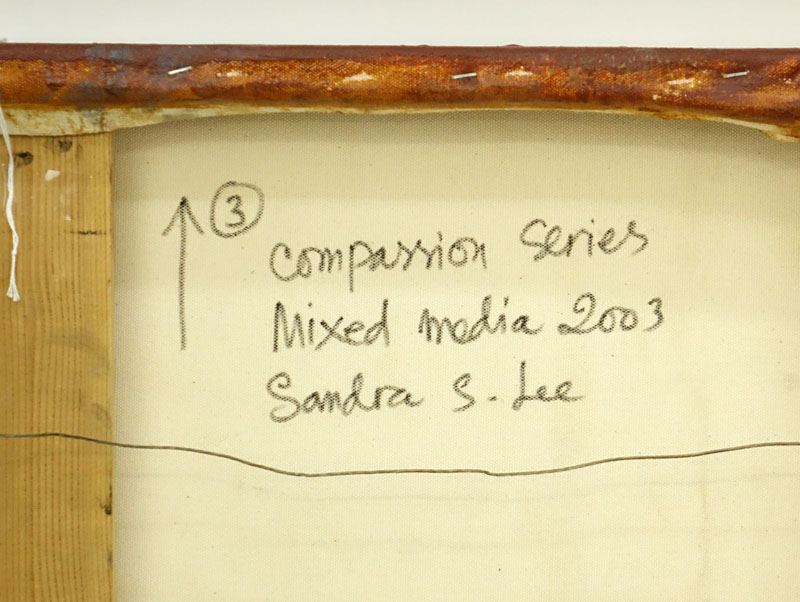 ③
Compassion Series
Mixed media 2003
Sandra S. Lee